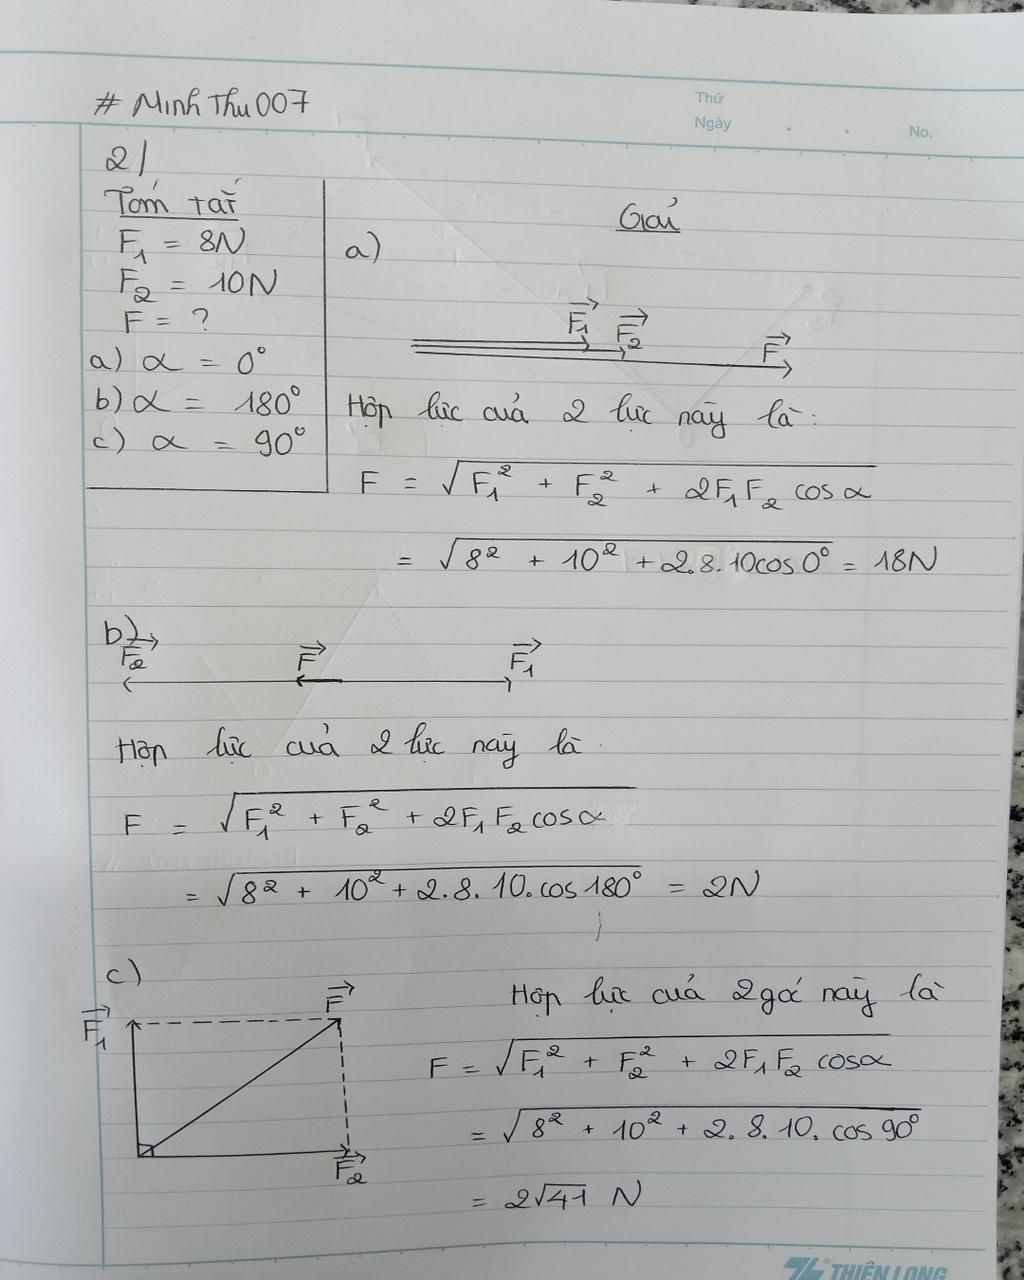 # Minh Thu 007
Thứ
Ngày . .
No.
2/
Tóm tắt
F₁ = 8N
F₂ = 10N
F = ?
a) α = 0°
b) α = 180°
c) α = 90°
Giải
a)
F₁→ F₂→ F→
Hợp lực của 2 lực này là:
F = √(F₁² + F₂² + 2F₁F₂ cos α)
= √(8² + 10² + 2.8.10cos 0°) = 18N
b)
F₂→ F→ F₁→
Hợp lực của 2 lực này là
F = √(F₁² + F₂² + 2F₁F₂ cos α)
= √(8² + 10² + 2.8.10.cos 180°) = 2N
c)
F₁→ F→
F₂→
Hợp lực của 2 này là
F = √(F₁² + F₂² + 2F₁F₂ cos α)
= √(8² + 10² + 2.8.10.cos 90°)
= 2√41 N
THIÊN LONG